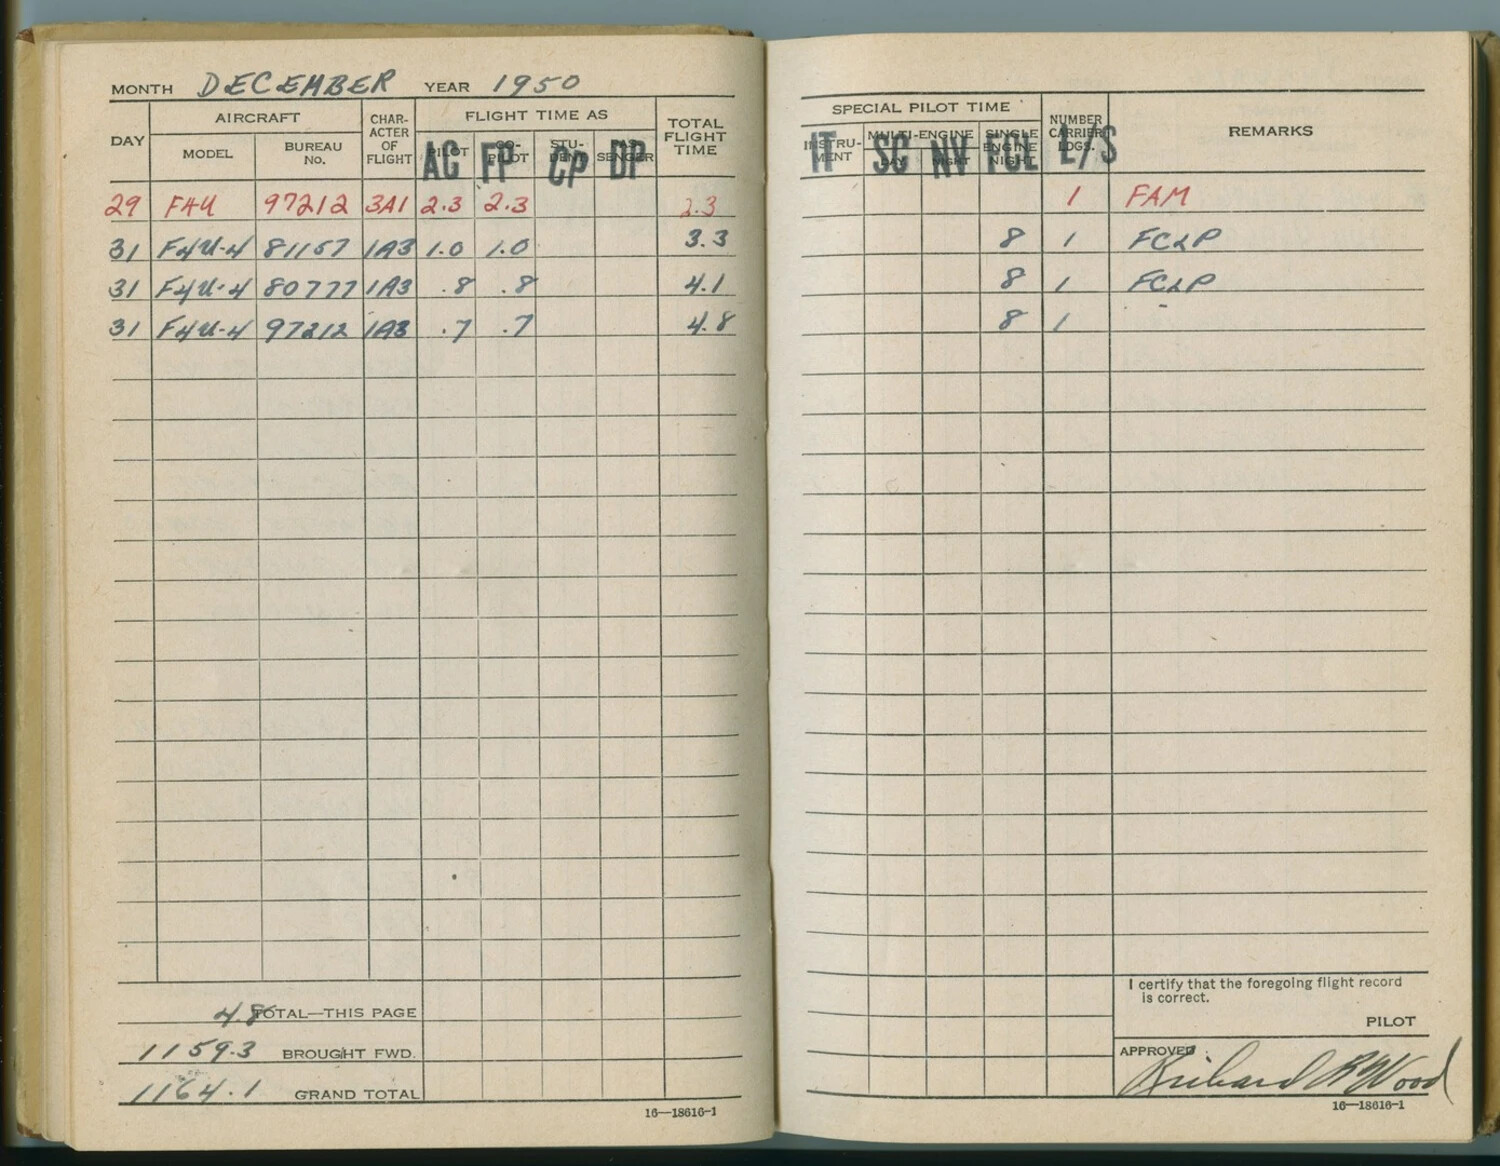 MONTH DECEMBER YEAR 1950
DAY AIRCRAFT CHAR-ACTER OF FLIGHT FLIGHT TIME AS TOTAL FLIGHT TIME
MODEL BUREAU No. PILOT CO-PILOT STU-DENT PASSENGER
AC FP CP DP
29 F4U 97212 3A1 2.3 2.3 2.3
31 F4U-4 81157 1A3 1.0 1.0 3.3
31 F4U-4 80777 1A3 .8 .8 4.1
31 F4U-4 97212 1A3 .7 .7 4.8
4.8 TOTAL—THIS PAGE
1159.3 BROUGHT FWD.
1164.1 GRAND TOTAL
16—18616-1
SPECIAL PILOT TIME NUMBER CARRIER LDGS. REMARKS
INSTRU-MENT MULTI-ENGINE DAY NIGHT SINGLE ENGINE NIGHT
IT SC NV FCL L/S
1 FAM
8 1 FCLP
8 1 FCLP
8 1
I certify that the foregoing flight record
is correct.
PILOT
APPROVED: Richard R Wood
16—18616-1